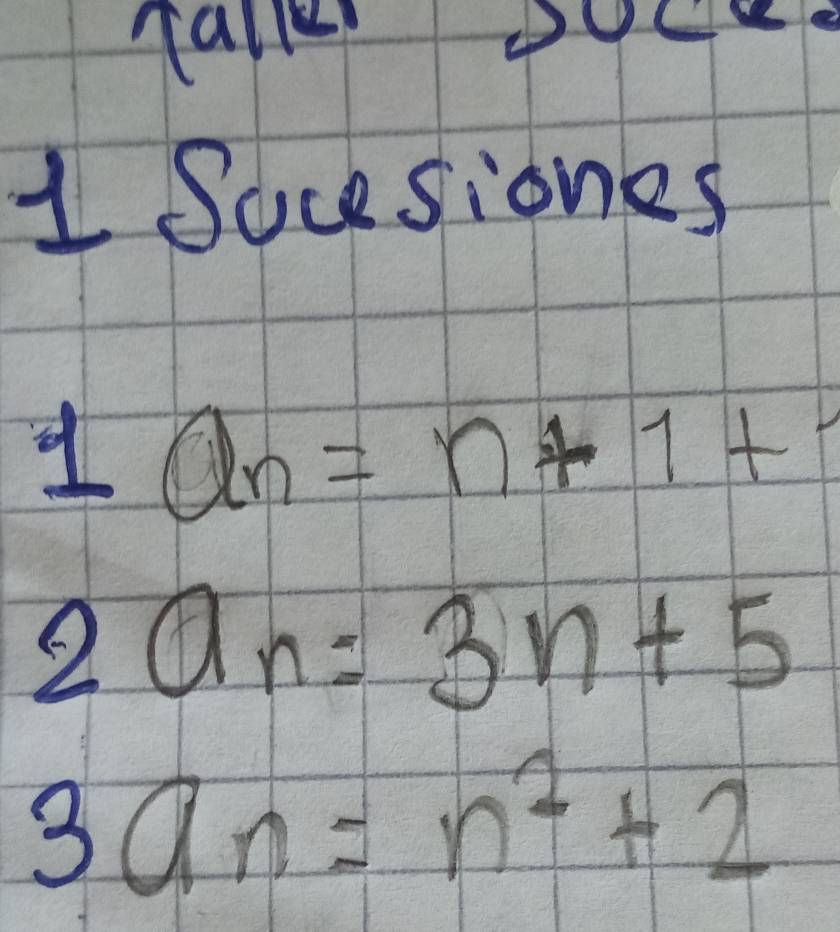 Taller
1 Sucesiones
1 an = n + 1 +
2 an = 3n + 5
3 an = n² + 2